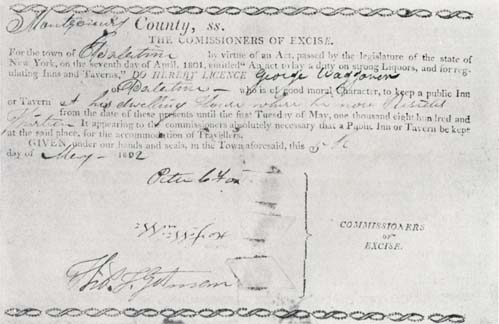 Montgomery County, ss.
THE COMISSIONERS OF EXCISE.
For the town of Palatine by virtue of an Act, passed by the legislature of the state of
New York, on the seventh day of April, 1801, entitled "An act to lay a duty on strong Liquors, and for reg-
ulating Inns and Taverns," DO HEREBY LICENCE George Waggoner
of Palatine who is of good moral Character, to keep a public Inn
or Tavern At his dwelling House where he now Resides
from the date of these presents until the first Tuesday of May, one thousand eight hundred and
It appearing to the commissioners absolutely necessary that a Public Inn or Tavern be kept
at the said place, for the accommodation of Travellers.
GIVEN under our hands and seals, in the Town aforesaid, this
day of May 1802
Peter C Fox
COMMISSIONERS
OF
EXCISE.